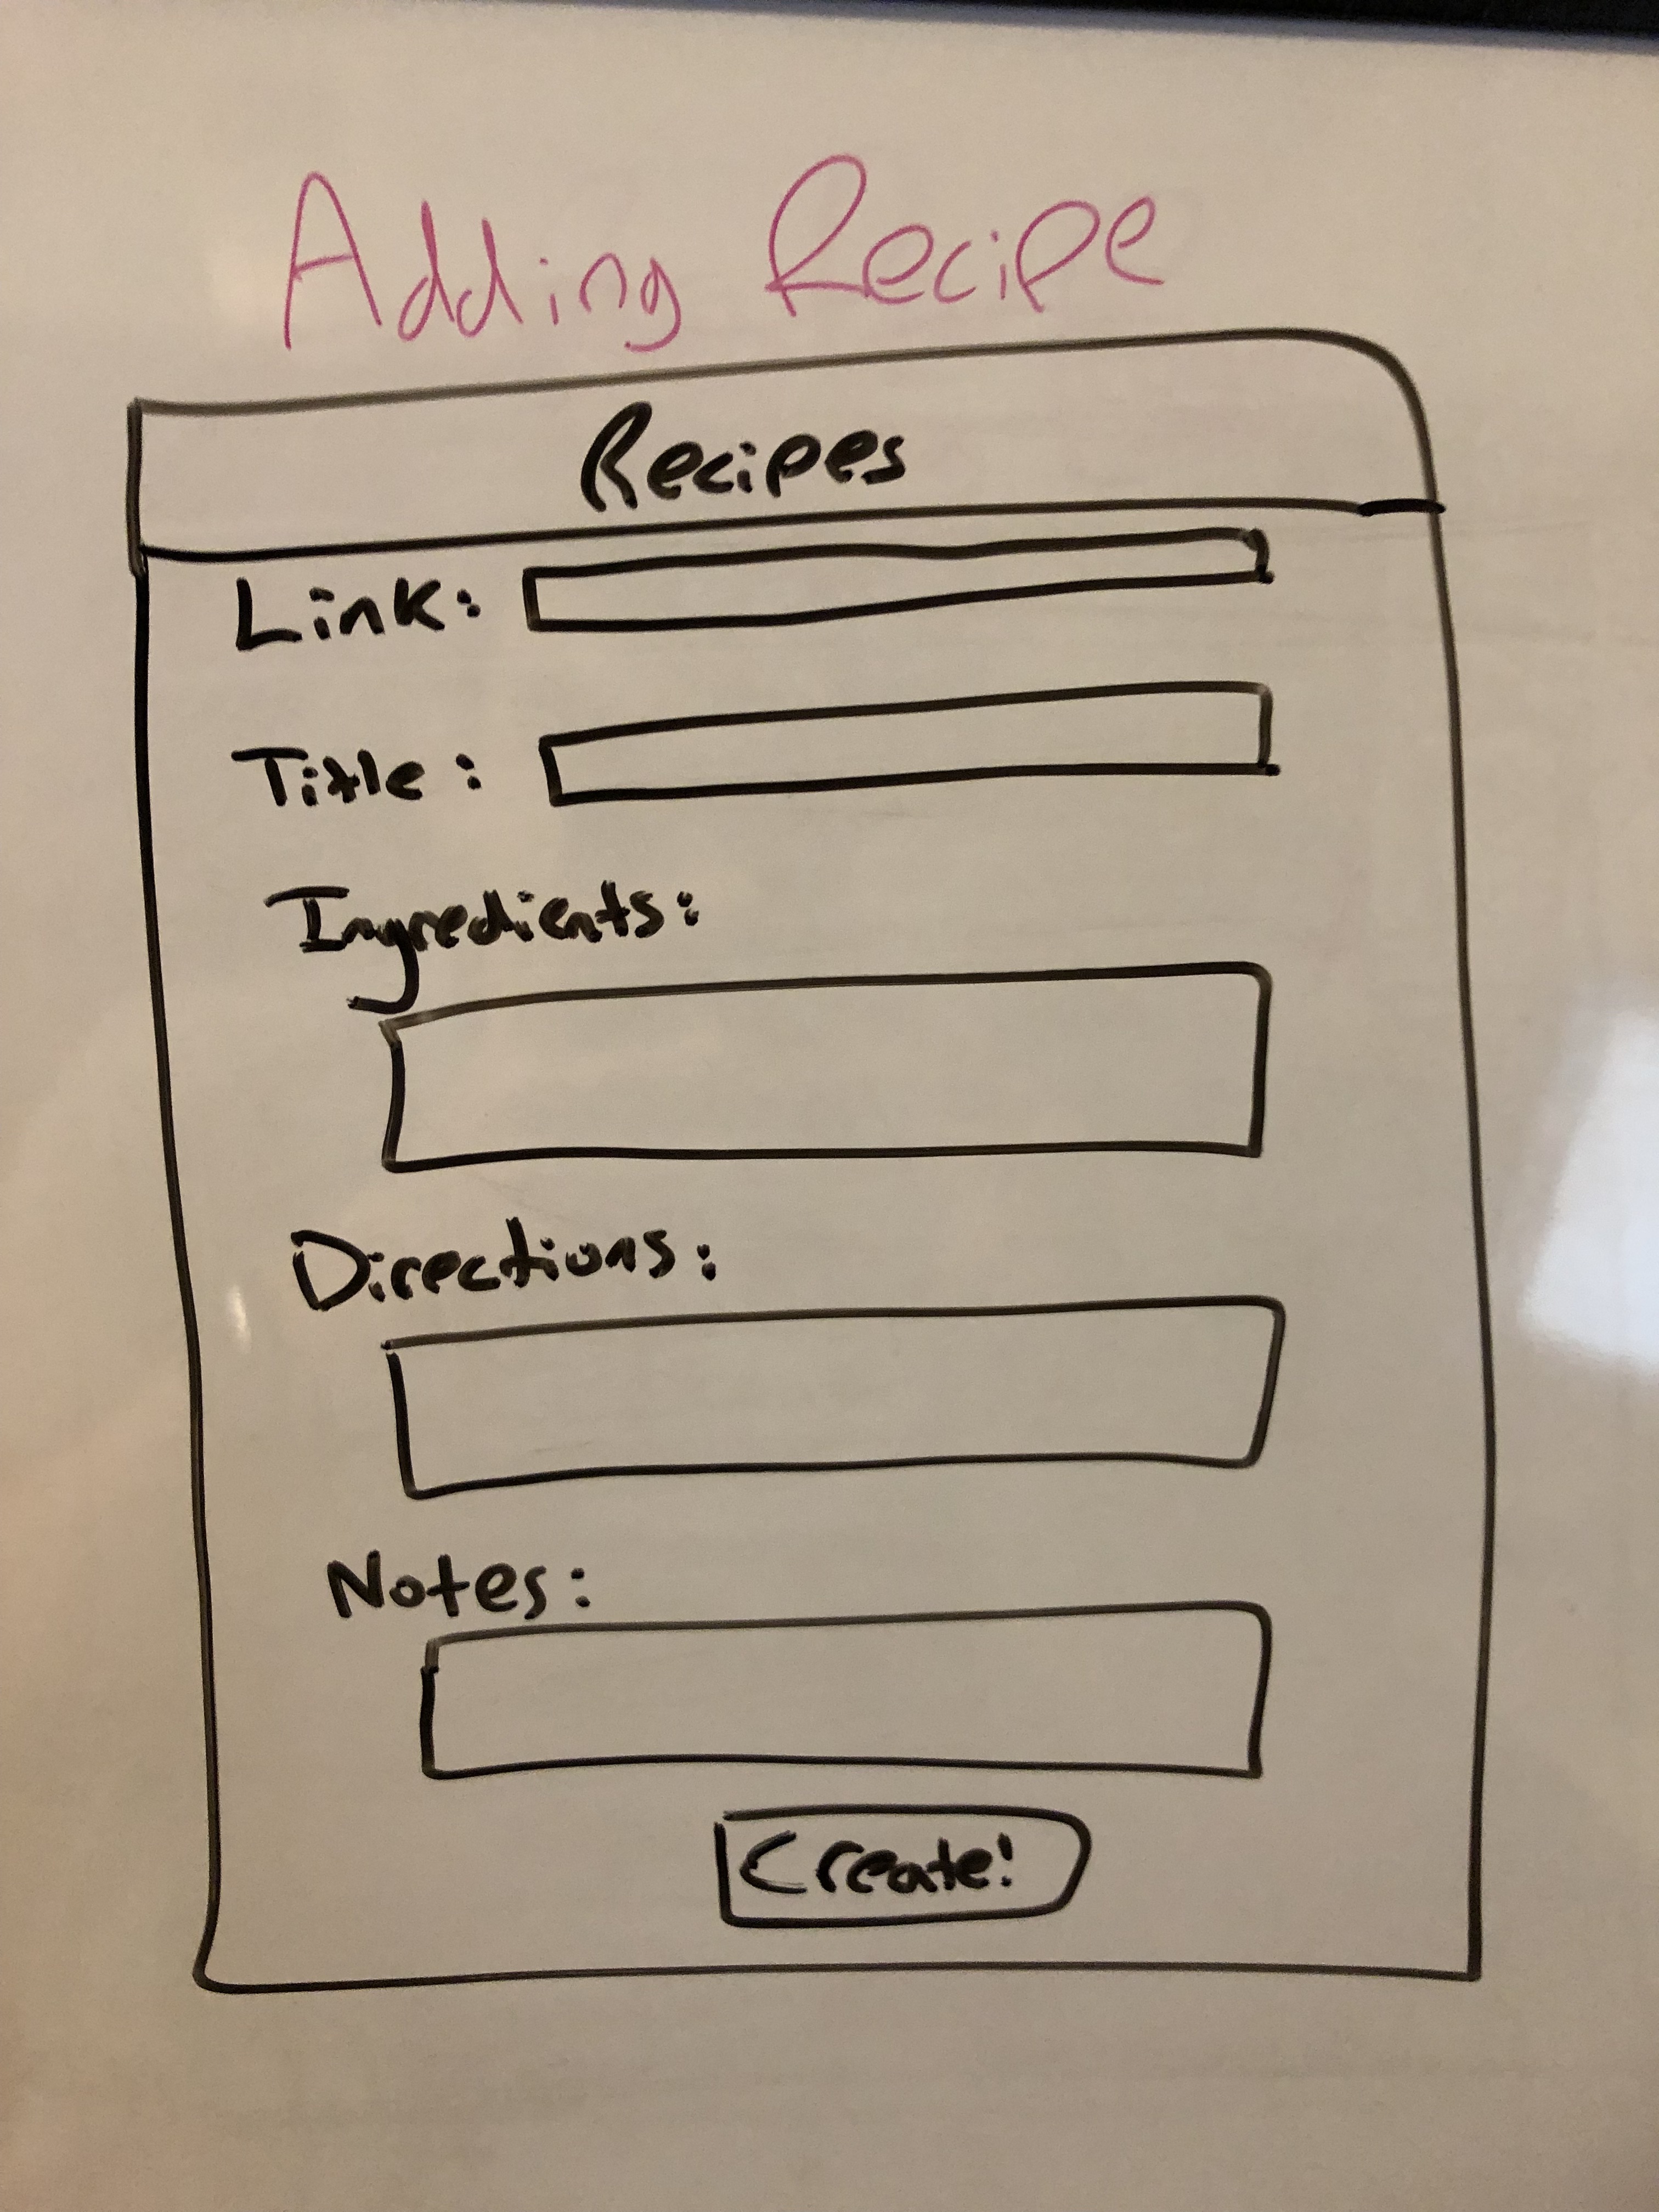 Adding Recipe
Recipes
Link:
Title:
Ingredients:
Directions:
Notes:
Create!